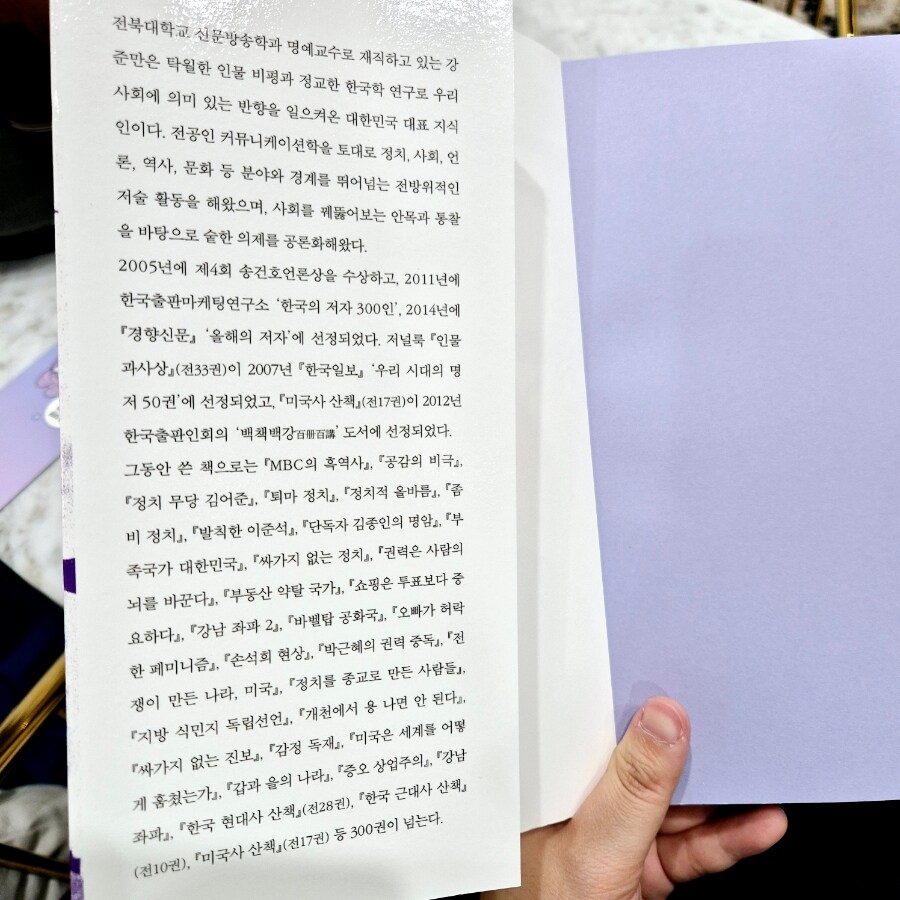 전북대학교 신문방송학과 명예교수로 재직하고 있는 강
준만은 탁월한 인물 비평과 정교한 한국학 연구로 우리
사회에 의미 있는 반향을 일으켜온 대한민국 대표 지식
인이다. 전공인 커뮤니케이션학을 토대로 정치, 사회, 언
론, 역사, 문화 등 분야와 경계를 뛰어넘는 전방위적인
저술 활동을 해왔으며, 사회를 꿰뚫어보는 안목과 통찰
을 바탕으로 숱한 의제를 공론화해왔다.
2005년에 제4회 송건호언론상을 수상하고, 2011년에
한국출판마케팅연구소 ‘한국의 저자 300인’, 2014년에
『경향신문』 ‘올해의 저자’에 선정되었다. 저널룩 『인물
과사상』(전33권)이 2007년 『한국일보』 ‘우리 시대의 명
저 50권’에 선정되었고, 『미국사 산책』(전17권)이 2012년
한국출판인회의 ‘백책백강百冊百講’ 도서에 선정되었다.
그동안 쓴 책으로는 『MBC의 흑역사』, 『공감의 비극』,
『정치 무당 김어준』, 『퇴마 정치』, 『정치적 올바름』, 『좀
비 정치』, 『발칙한 이준석』, 『단독자 김종인의 명암』, 『부
족국가 대한민국』, 『싸가지 없는 정치』, 『권력은 사람의
뇌를 바꾼다』, 『부동산 약탈 국가』, 『쇼핑은 투표보다 중
요하다』, 『강남 좌파 2』, 『바벨탑 공화국』, 『오빠가 허락
한 페미니즘』, 『손석희 현상』, 『박근혜의 권력 중독』, 『전
쟁이 만든 나라, 미국』, 『정치를 종교로 만든 사람들』,
『지방 식민지 독립선언』, 『개천에서 용 나면 안 된다』,
『싸가지 없는 진보』, 『감정 독재』, 『미국은 세계를 어떻
게 훔쳤는가』, 『갑과 을의 나라』, 『증오 상업주의』, 『강남
좌파』, 『한국 현대사 산책』(전28권), 『한국 근대사 산책』
(전10권), 『미국사 산책』(전17권) 등 300권이 넘는다.